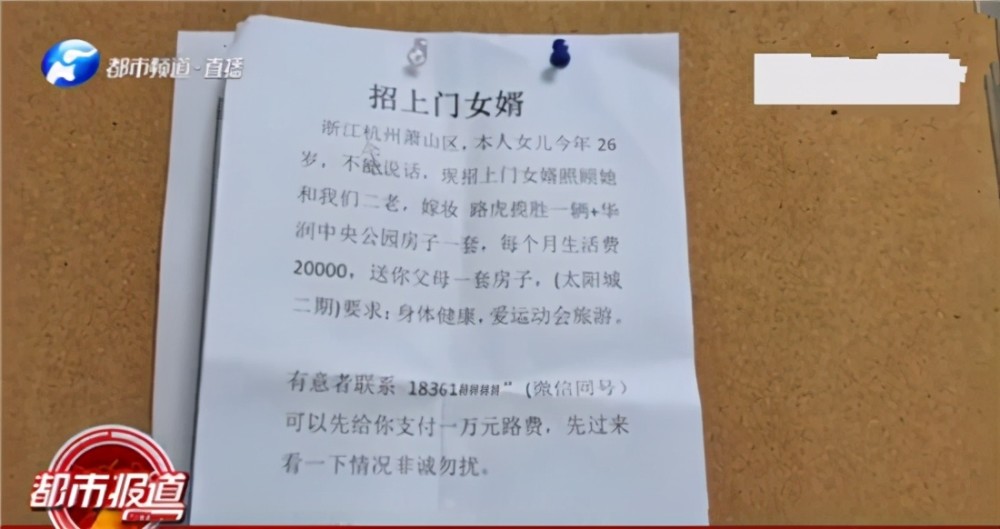 都市频道·直播
招上门女婿
浙江杭州萧山区，本人女儿今年26
岁，不能说话，现招上门女婿照顾她
和我们二老，嫁妆 路虎揽胜一辆+华
润中央公园房子一套，每个月生活费
20000，送你父母一套房子，(太阳城
二期)要求：身体健康，爱运动会旅游。
有意者联系 18361 (微信同号)
可以先给你支付一万元路费，先过来
看一下情况非诚勿扰。
都市报道